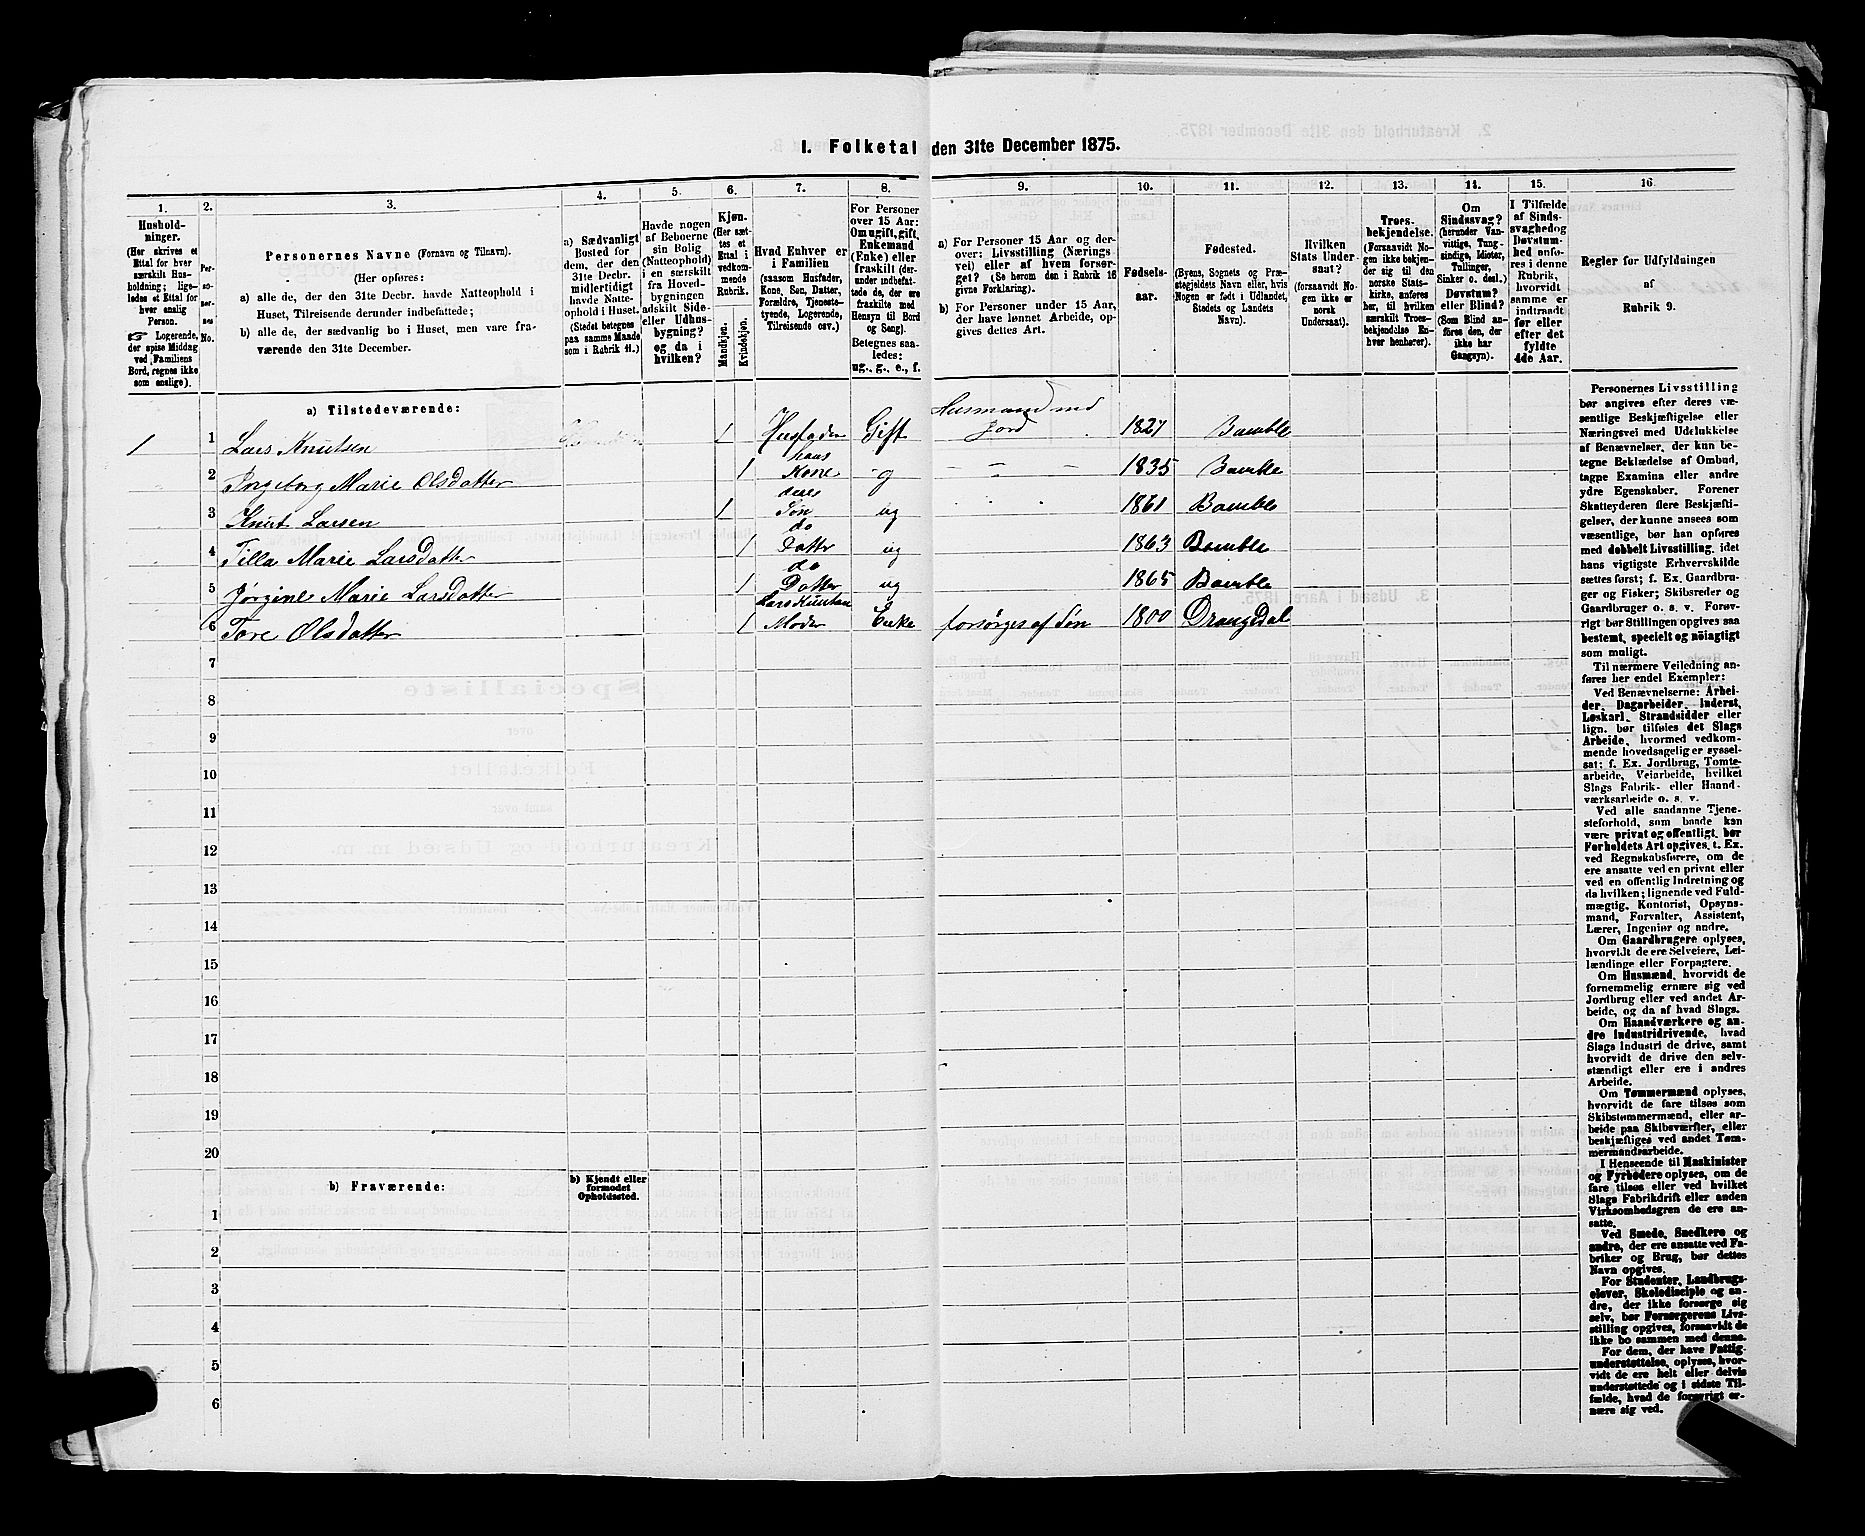 I. Folketal den 31te December 1875.
1.
2.
3.
4.
5.
6.
7.
8.
9.
10.
11.
12.
13.
14.
15.
16.
Hushold-
ninger.
(Her skrives et
Ettal for hver
særskilt Hus-
holdning; lige-
ledes et Ettal for
hver enslig
Person.
☞ Logerende,
der spise Middag
ved Familiens
Bord, regnes ikke
som enslige).
Per-
so-
ner-
nes
No.
Personernes Navne (Fornavn og Tilnavn).
(Her opføres:
a) alle de, der den 31te Decbr. havde Natteophold i
Huset, Tilreisende derunder indbefattede;
b) alle de, der sædvanlig bo i Huset, men vare fra-
værende den 31te December.
a) Sædvanligt
Bosted for
dem, der den
31te Decbr.
midlertidigt
havde Natte-
ophold i Huset.
(Stedet betegnes
paa samme Maade
som i Rubrik 11.)
Havde nogen
af Beboerne
sin Bolig
(Natteophold)
i en særskilt
fra Hoved-
bygningen
adskilt Side-
eller Udhus-
bygning?
og da i
hvilken?
Kjøn.
(Her sæt-
tes et
Ettal i
vedkom-
mende
Rubrik.
Mandkjøn.
Kvindekjøn.
Hvad Enhver er
i Familien
(saasom Husfader,
Kone, Søn, Datter,
Forældre, Tjeneste-
tyende, Logerende,
Tilreisende osv.)
For Personer
over 15 Aar:
Om ugift, gift,
Enkemand
(Enke) eller
fraskilt (der-
under indbefat-
tede de, der ere
fraskilte med
Hensyn til Bord
og Seng).
Betegnes saa-
ledes:
ug., g., e., f.
a) For Personer 15 Aar og der-
over: Livsstilling (Nærings-
vei) eller af hvem forsør-
get? (Se herom den i Rubrik 16
givne Forklaring).
b) For Personer under 15 Aar,
der have lønnet Arbeide, op-
gives dettes Art.
Fødsels-
aar.
Fødested.
(Byens, Sognets og Præ-
stegjeldets Navn eller, hvis
Nogen er født i Udlandet,
Stedets og Landets
Navn).
Hvilken
Stats Under-
saat?
(forsaavidt No-
gen ikke er
norsk
Undersaat).
Troes-
bekjendelse.
(Forsaavidt No-
gen ikke bekjen-
der sig til den
norske Stats-
kirke, anføres
her, til hvilken
særskilt Troes-
bekjendelse En-
hver henhører).
Om
Sindssvag?
(herunder Van-
vittige, Tung-
sindige, Idioter,
Tullinger,
Sinker o. desl.)
Døvstum?
eller Blind?
(Som Blind an-
føres den, der
ikke har
Gangsyn).
I Tilfælde
af Sinds-
svaghed og
Døvstum-
hed anfø-
res i denne
Rubrik,
hvorvidt
samme er
indtraadt
før eller
efter det
fyldte
4de Aar.
Regler for Udfyldningen
af
Rubrik 9.
a) Tilstedeværende:
1 1 Lars Knutsen 1 Husfader Gift Husmand med Jord 1827 Bamble
2 Ingeborg Marie Olsdatter 1 hans Kone g – – – 1835 Bamble
3 Knut Larsen 1 deres Søn ug 1861 Bamble
4 Tilla Marie Larsdatter 1 do Datter ug 1863 Bamble
5 Jørgine Marie Larsdatter 1 do Datter ug 1865 Bamble
6 Tore Olsdatter 1 Lars Knutsens Moder Enke forsørges af Søn 1800 Drangedal
7
8
9
10
11
12
13
14
15
16
17
18
19
20
b) Fraværende:
b) Kjendt eller
formodet
Opholdssted.
1
2
3
4
5
6
Personernes Livsstilling
bør angives efter deres væ-
sentlige Beskjæftigelse eller
Næringsvei med Udelukkelse
af Benævnelser, der kun be-
tegne Beklædelse af Ombud,
tagne Examina eller andre
ydre Egenskaber. Forener
Skatteyderen flere Beskjæfti-
gelser, der kunne ansees som
væsentlige, bør han opføres
med dobbelt Livsstilling, idet
hans vigtigste Erhvervskilde
sættes først; f. Ex. Gaardbru-
ger og Fisker; Skibsreder og
Gaardbruger o. s. v. Forøv-
rigt bør Stillingen opgives saa
bestemt, specielt og nøiagtigt
som muligt.
Til nærmere Veiledning an-
føres her endel Exempler:
Ved Benævnelserne: Arbei-
der, Dagarbeider, Inderst,
Løskarl, Strandsidder eller
lign. bør tilføies det Slags
Arbeide, hvormed vedkom-
mende hovedsagelig er syssel-
sat; f. Ex. Jordbrug, Tomte-
arbeide, Veiarbeide, hvilket
Slags Fabrik- eller Haand-
værksarbeide o. s. v.
Ved alle saadanne Tjene-
steforhold, som baade kan
være privat og offentligt, bør
Forholdets Art opgives, t. Ex.
ved Regnskabsførere, om de
ere ansatte ved en privat eller
ved en offentlig Indretning og
da hvilken; lignende ved Fuld-
mægtig, Kontorist, Opsyns-
mand, Forvalter, Assistent,
Lærer, Ingeniør og andre.
Om Gaardbrugere oplyses,
hvorvidt de ere Selveiere, Lei-
lændinge eller Forpagtere.
Om Husmænd, hvorvidt de
fornemmelig ernære sig ved
Jordbrug eller ved andet Ar-
beide, og da af hvad Slags.
Om Haandværkere og an-
dre Industridrivende, hvad
Slags Industri de drive, samt
hvorvidt de drive den selv-
stændigt eller ere i andres
Arbeide.
Om Tømmermænd oplyses,
hvorvidt de fare tilsøs som
Skibstømmermænd, eller ar-
beide paa Skibsværfter, eller
beskjæftiges ved andet Tøm-
mermandsarbeide.
I Henseende til Maskinister
og Fyrbødere oplyses, om de
fare tilsøs eller ved hvilket
Slags Fabrikdrift eller anden
Virksomhedsgren de ere an-
satte.
Ved Smede, Snedkere og
andre, der ere ansatte ved Fa-
briker og Brug, bør dettes
Navn opgives.
For Studenter, Landbrugs-
elever, Skoledisciple og an-
dre, der ikke forsørge sig
selv, bør Forsørgerens Livs-
stilling opgives, forsaavidt de
ikke bo sammen med denne.
For dem, der have Fattig-
understøttelse, oplyses, hvor-
vidt de ere helt eller delvis
understøttede og i sidste Til-
fælde, hvad de forøvrigt er-
nære sig ved.